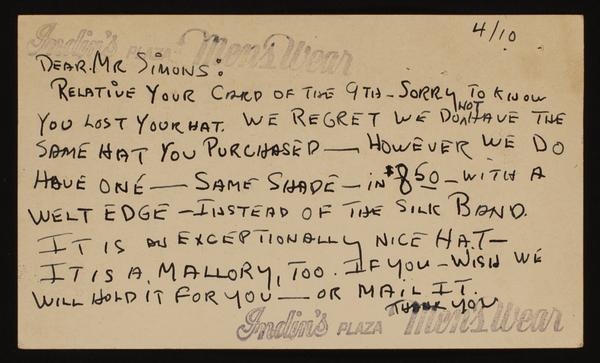 4/10
Indin's PLAZA Men's Wear
DEAR MR SIMONS:
RELATIVE YOUR CARD OF THE 9TH - SORRY TO KNOW
YOU LOST YOUR HAT. WE REGRET WE DO NOT HAVE THE
SAME HAT YOU PURCHASED — HOWEVER WE DO
HAVE ONE — SAME SHADE — IN $8.50 - WITH A
WELT EDGE - INSTEAD OF THE SILK BAND.
IT IS AN EXCEPTIONALLY NICE HAT -
IT IS A MALLORY, TOO. IF YOU - WISH WE
WILL HOLD IT FOR YOU — OR MAIL IT.
THANK YOU
Indin's PLAZA Men's Wear